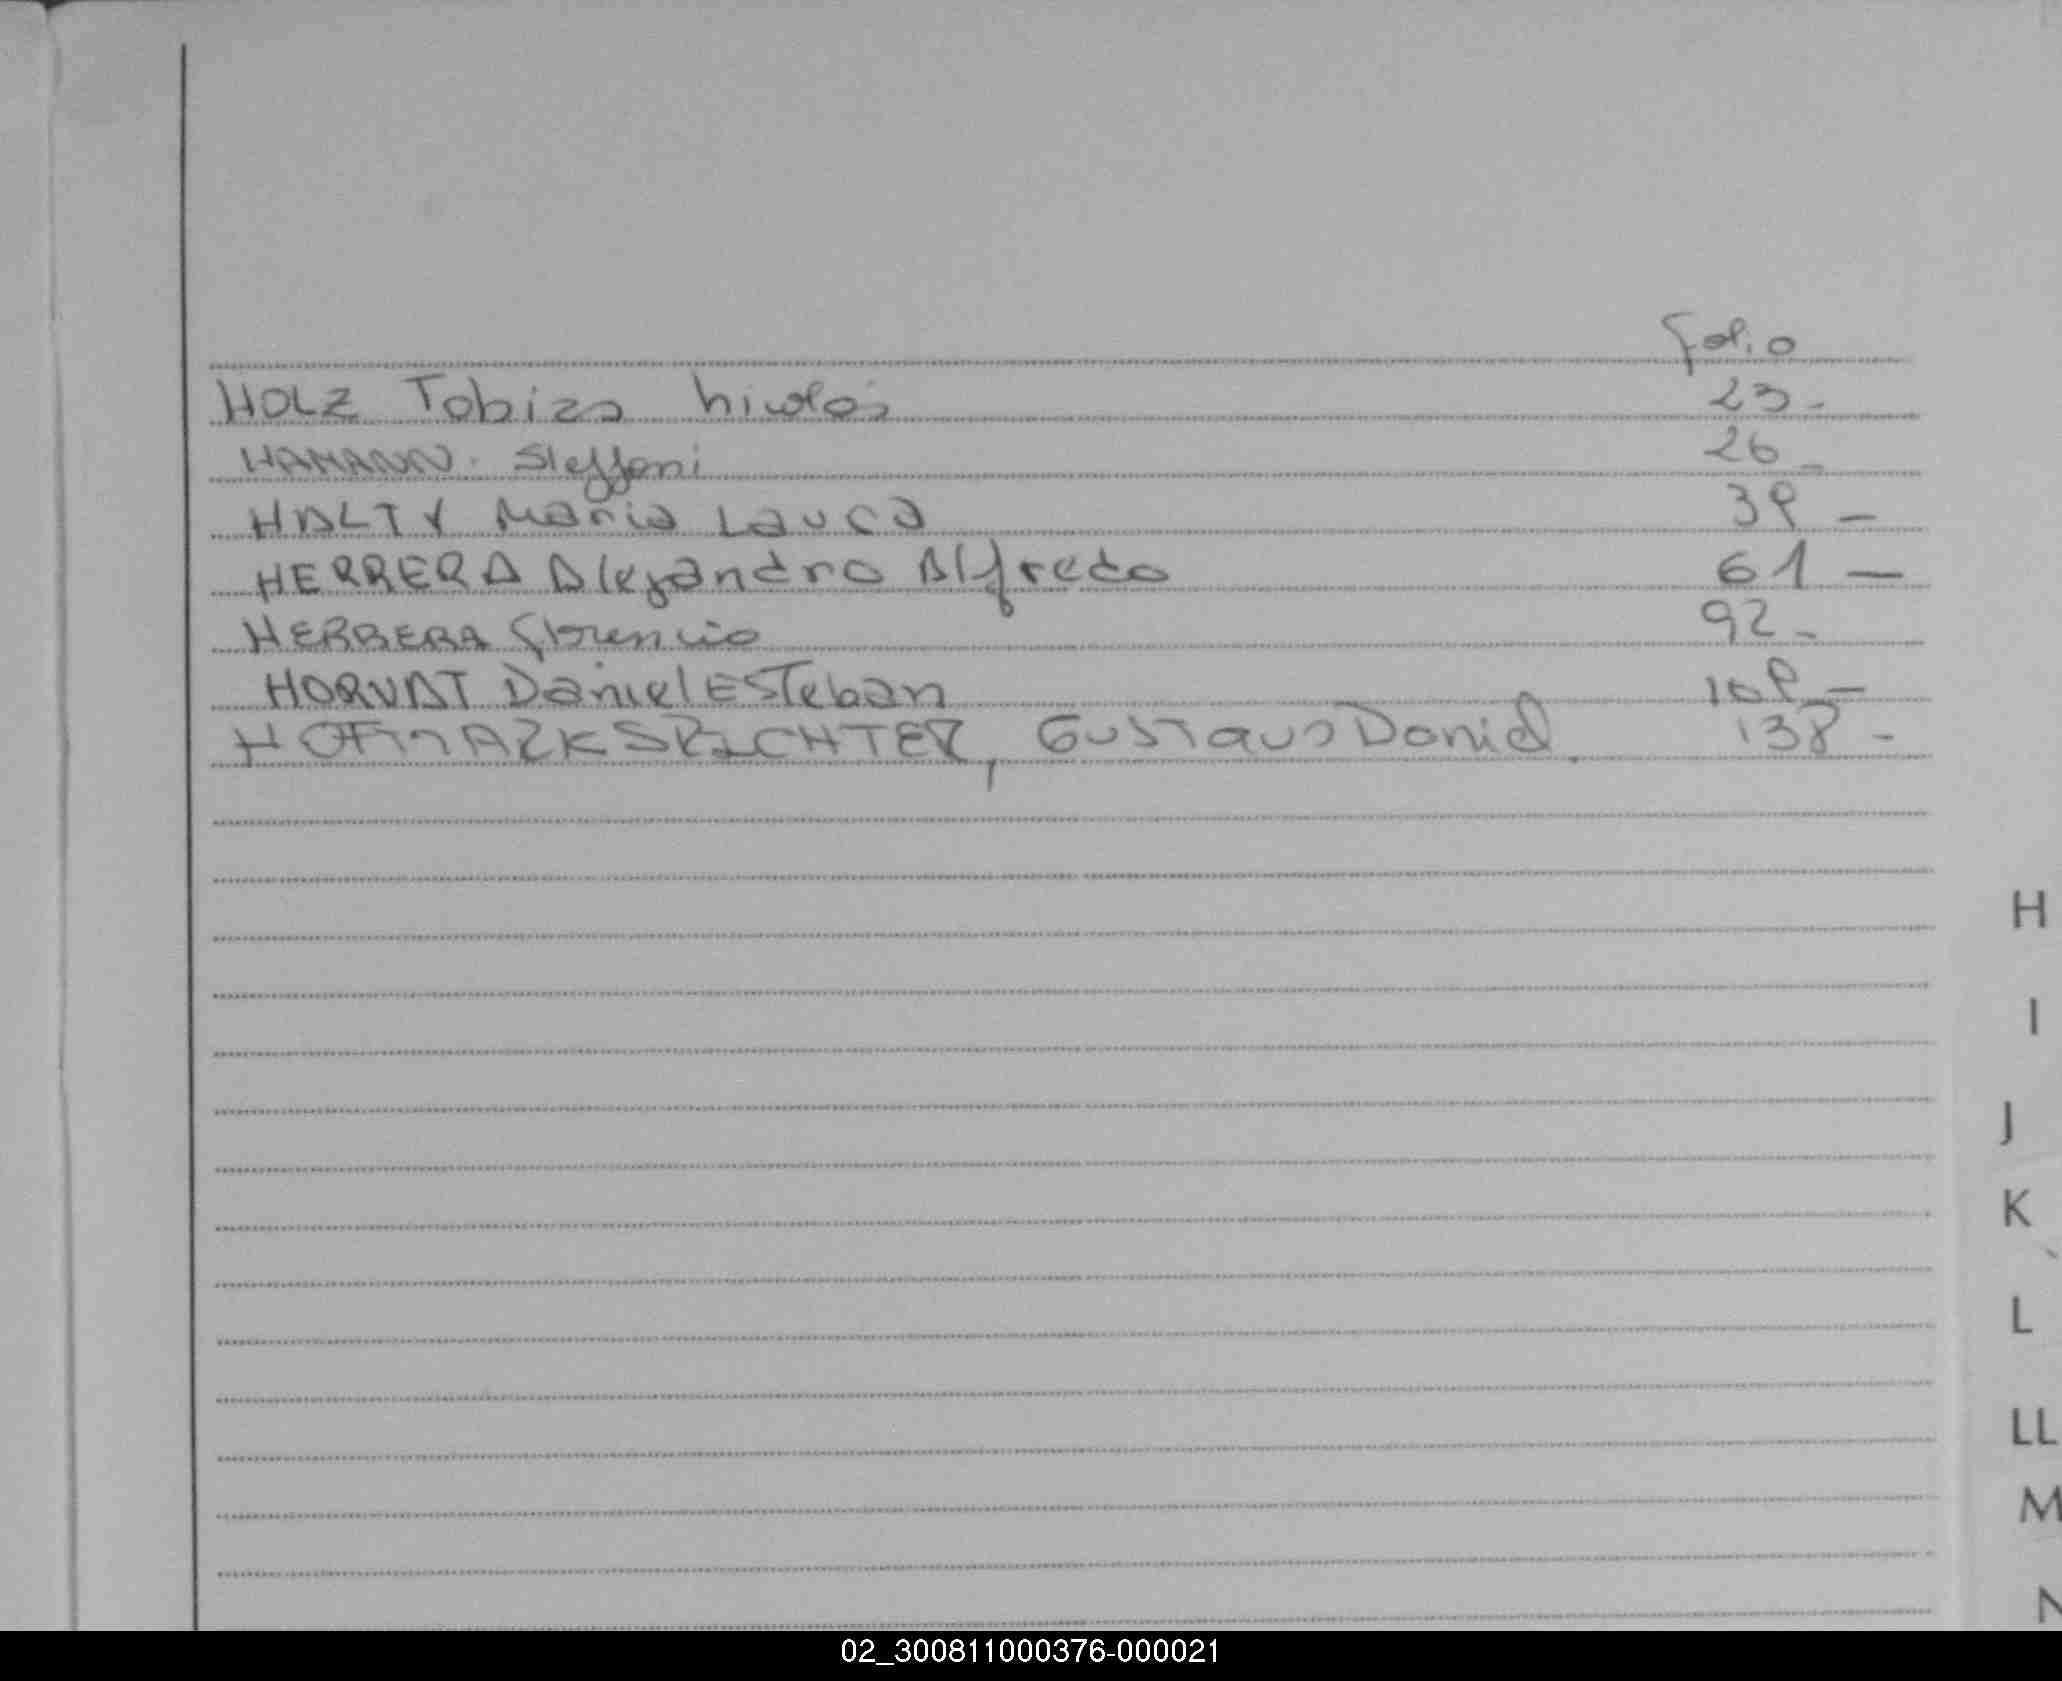 Folio
HOLZ Tobias Nicolás 23-
HAMANN. Steffani 26-
HALTY Maria Laura 39-
HERRERA Alejandro Alfredo 61-
HERRERA Florencio 92-
HORVAT Daniel Esteban 109-
Gustavo Daniel. 138-
H
I
J
K
L
LL
M
N
02_300811000376-000021